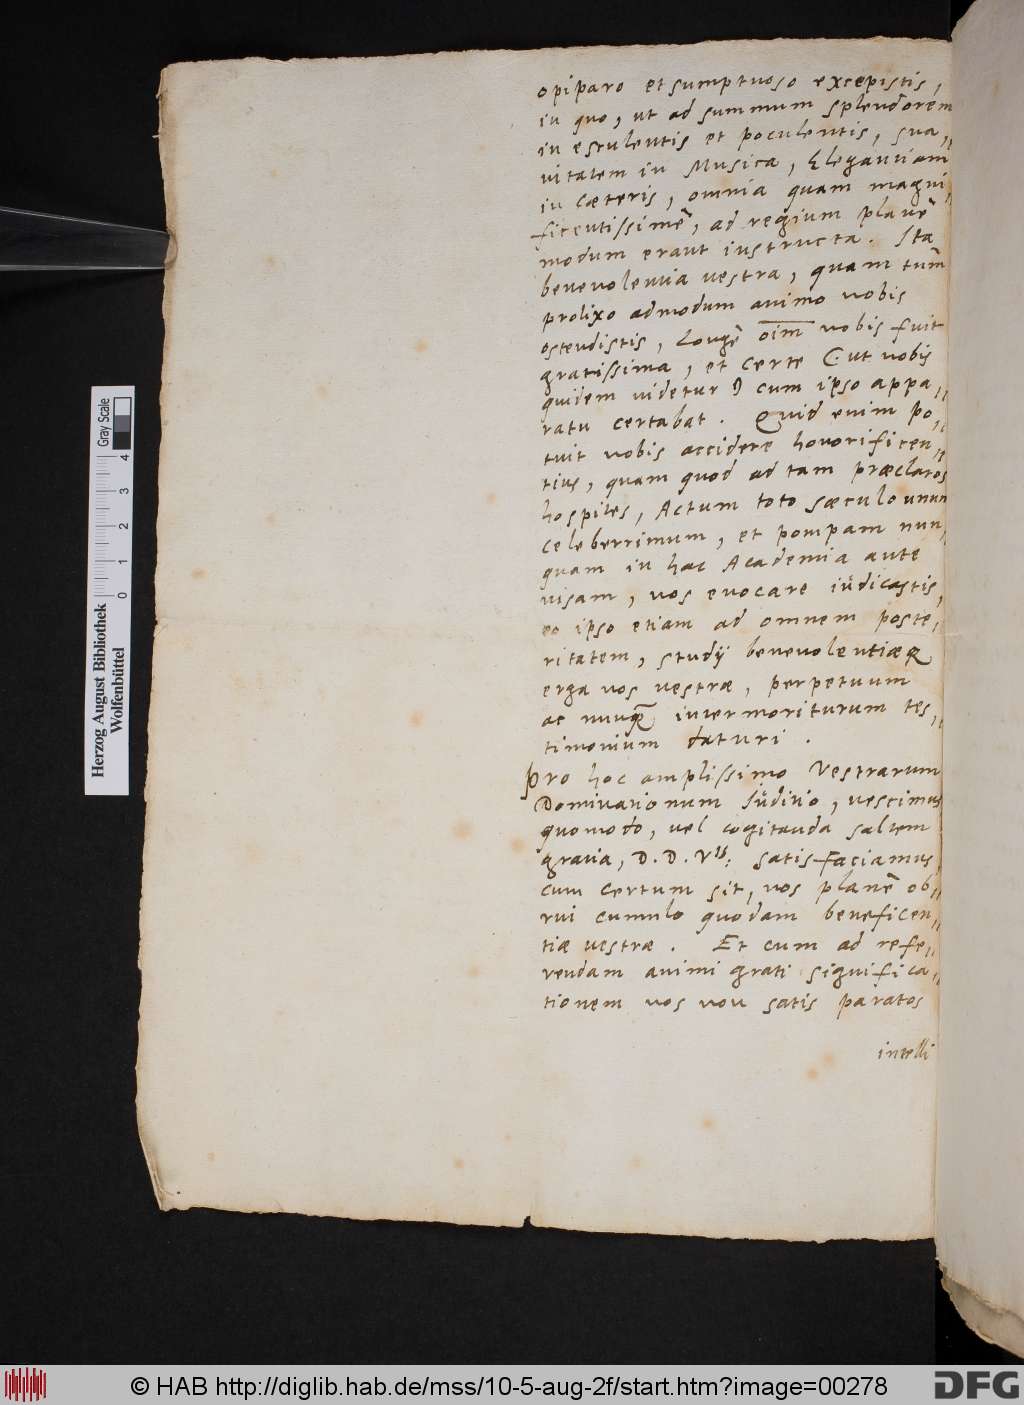 opiparo et sumptuoso excepistis,
in quo, ut ad summum splendorem
in esculentis et poculentis, sua,,
vitatem in Musica, Elegantiam
in cæteris, omnia quam magni,,
ficentissimè, ad regium planè
modum erant instructa. Ita
benevolentia vestra, quam tum
prolixo admodum animo nobis
ostendistis, longè oĩm nobis fuit
gratissima, et certe (ut nobis
quidem videtur) cum ipso appa,,
ratu certabat. Quid enim po,,
tuit nobis accidere honorificen,,
tius, quam quod ad tam præclaros
hospites, Actum toto sæculo unum
celeberrimum, et pompam nun,,
quam in hac Academia ante
visam, nos evocare iudicastis,
eo ipso etiam ad omnem poste,,
ritatem, studij benevolentiæq
erga nos vestræ, perpetuum
ac nunq̃ intermoriturum tes,,
timonium daturi.
Pro hoc amplissimo Vestrarum
Dominationum Iuditio, nescimus
quomodo, vel cogitanda saltem
gratia, D. D. Vrīs: satisfaciamus,
cum certum sit, nos planè ob,,
rui cumulo quodam beneficen,,
tiæ vestræ. Et cum ad refe,,
rendam animi grati significa,,
tionem nos non satis paratos
intelli
Herzog August Bibliothek
Wolfenbüttel
0 1 2 3 4
Gray Scale
© HAB http://diglib.hab.de/mss/10-5-aug-2f/start.htm?image=00278
DFG